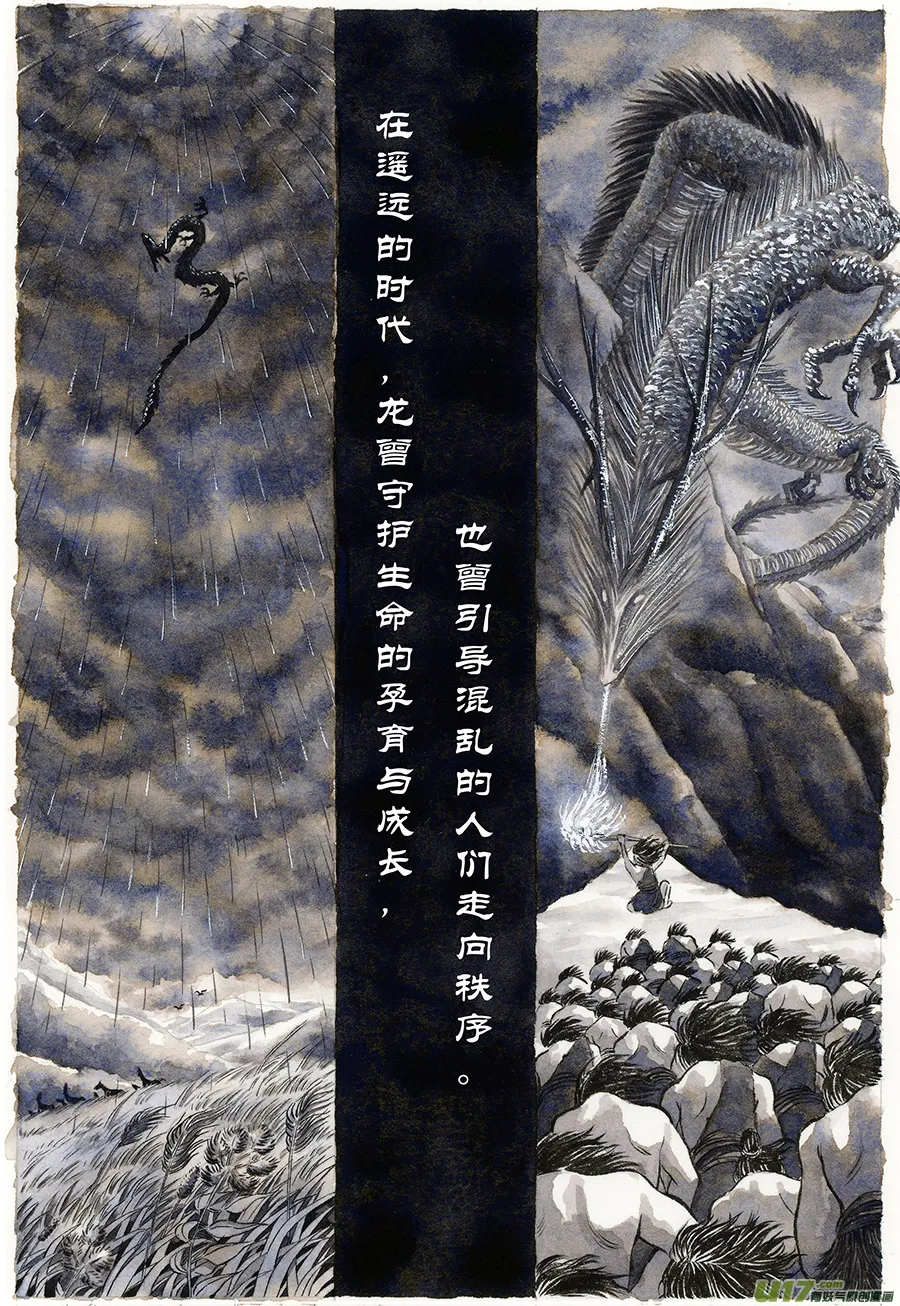 在遥远的时代，龙曾守护生命的孕育与成长，
也曾引导混乱的人们走向秩序。
U17.com
有妖气原创漫画